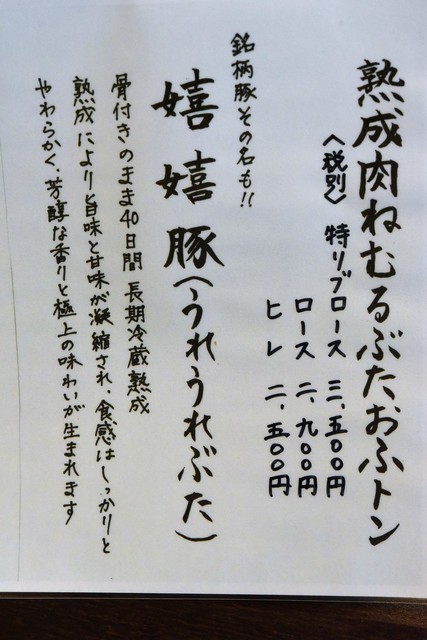 熟成肉ねむるぶたおふトン
〈税別〉 特リブロース 三、五〇〇円
ロース 二、九〇〇円
ヒレ 二、五〇〇円
銘柄豚その名も!!
嬉嬉豚(うれうれぶた)
骨付きのまま40日間 長期冷蔵熟成
熟成により旨味と甘味が凝縮され、食感はしっかりと
やわらかく、芳醇な香りと極上の味わいが生まれます